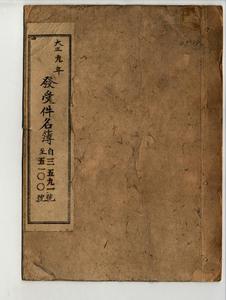 大正九年
發受件名簿
自三五九一號
至五一〇〇號